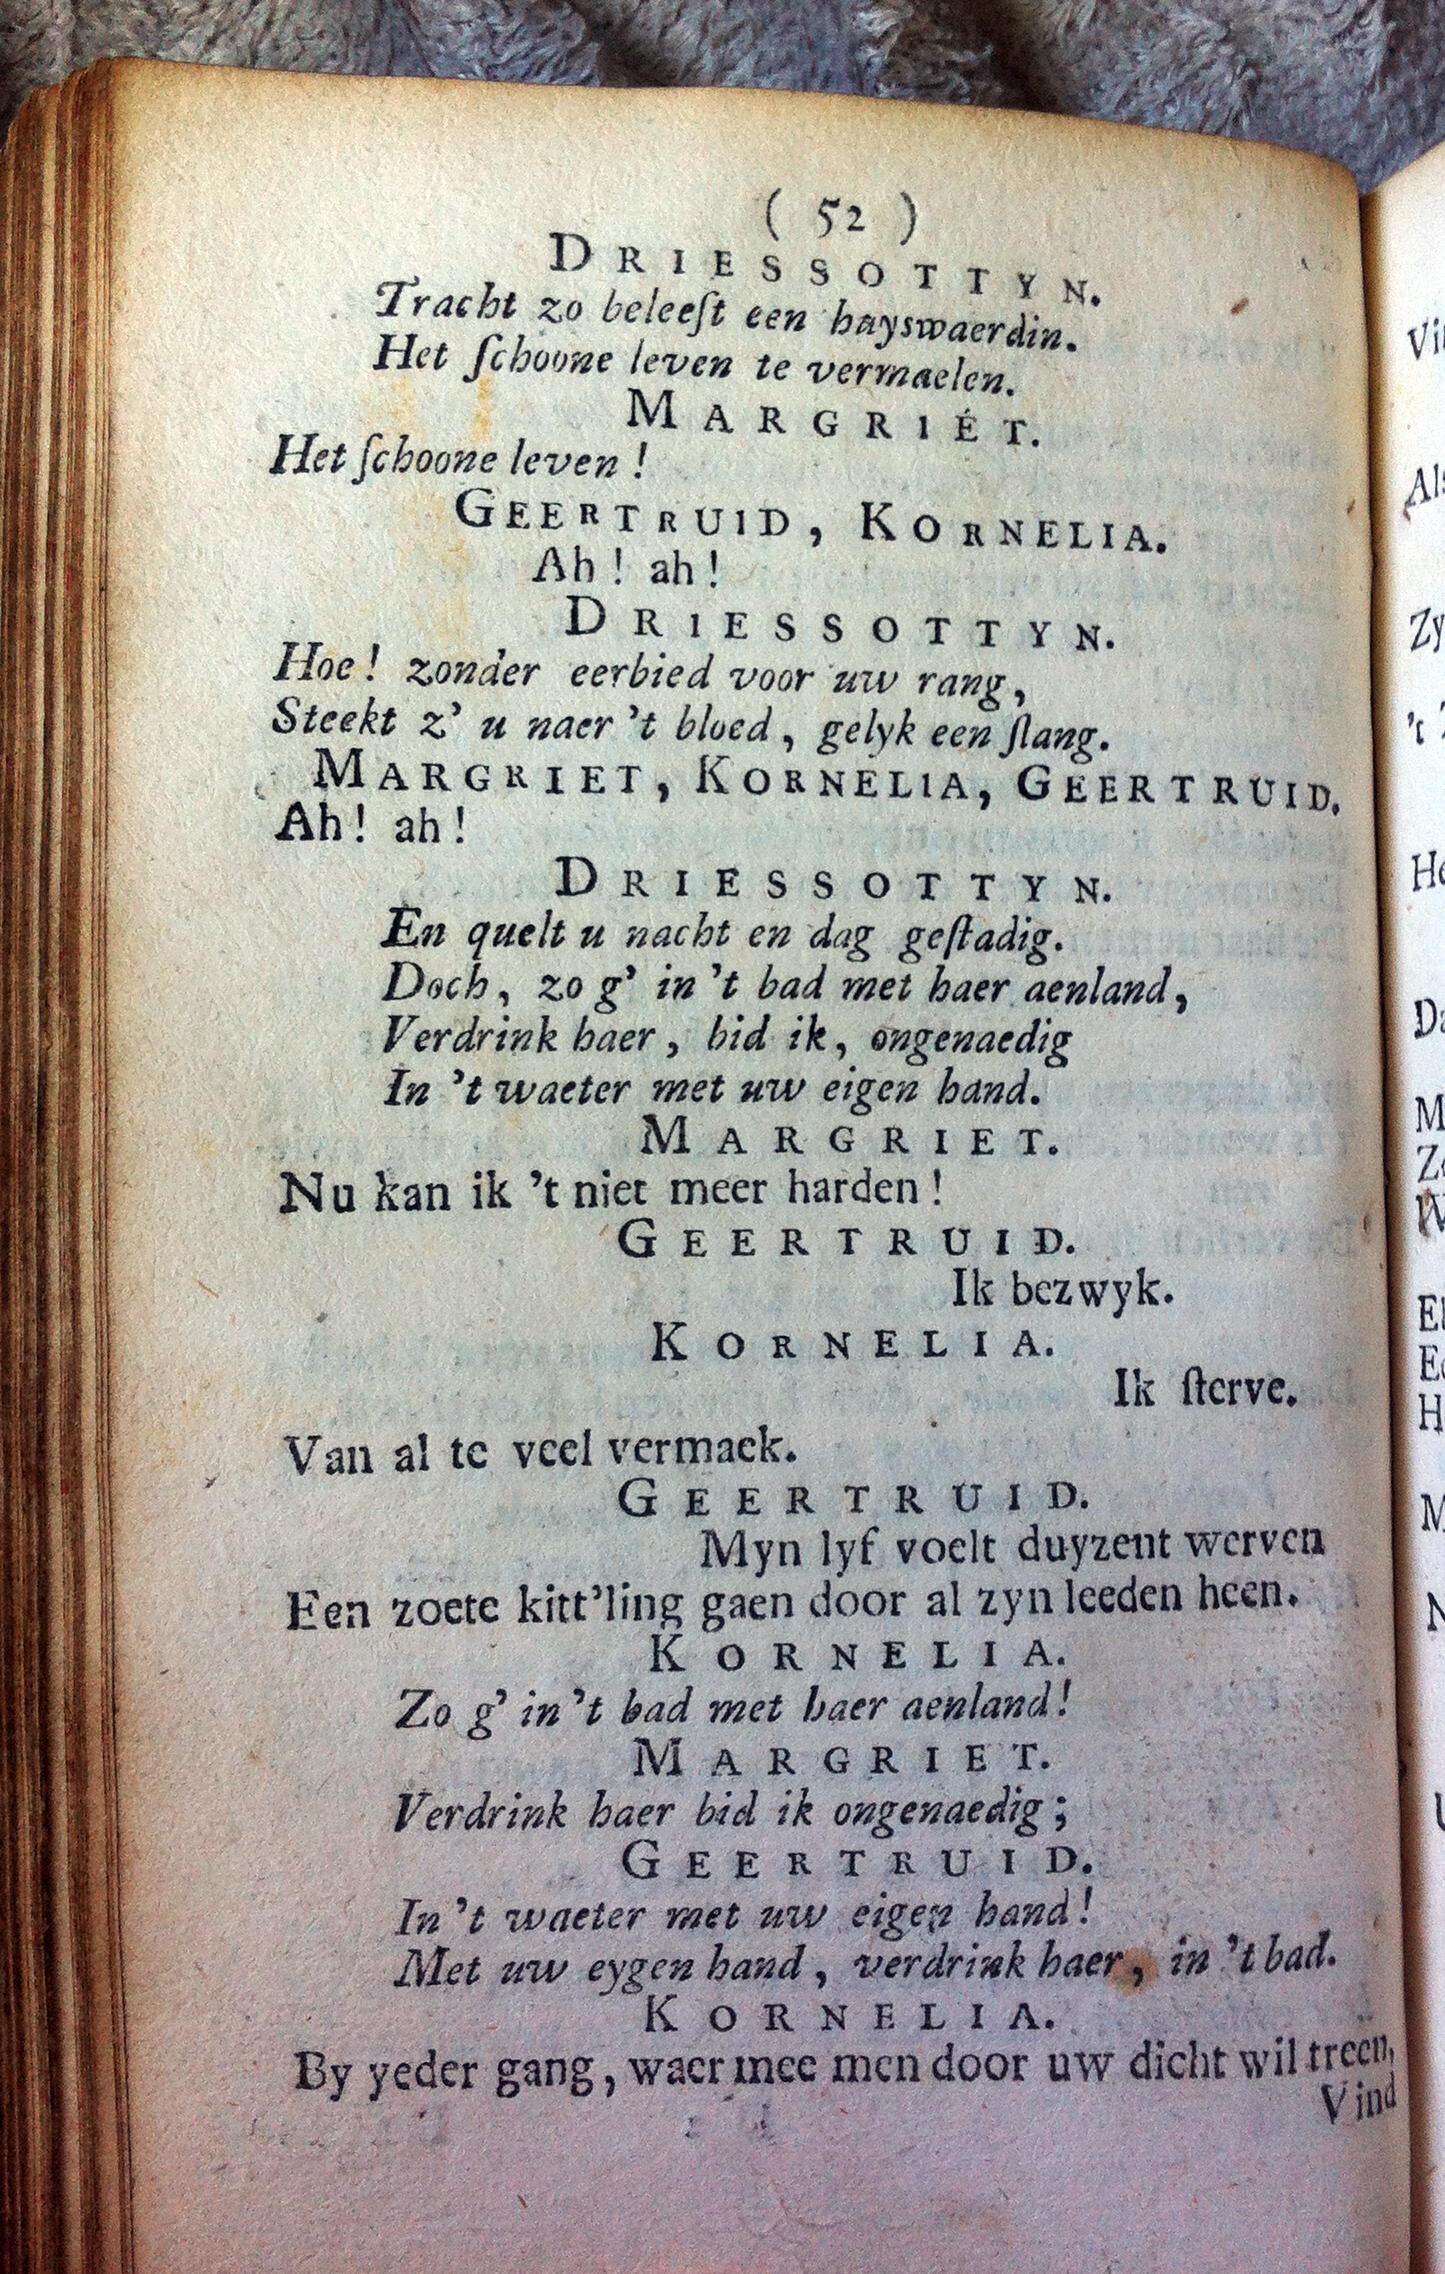 ( 52 )
DRIESSOTTYN.
Tracht zo beleeſt een huyswaerdin.
Het ſchoone leven te vermaelen.
MARGRIÉT.
Het ſchoone leven !
GEERTRUID, KORNELIA.
Ah ! ah !
DRIESSOTTYN.
Hoe ! zonder eerbied voor uw rang,
Steekt z' u naer 't bloed, gelyk een ſlang.
MARGRIET, KORNELIA, GEERTRUID.
Ah ! ah !
DRIESSOTTYN.
En quelt u nacht en dag geſtadig.
Doch, zo g' in 't bad met haer aenland,
Verdrink haer, bid ik, ongenaedig
In 't waeter met uw eigen hand.
MARGRIET.
Nu kan ik 't niet meer harden !
GEERTRUID.
Ik bezwyk.
KORNELIA.
Ik ſterve.
Van al te veel vermaek.
GEERTRUID.
Myn lyf voelt duyzent werven
Een zoete kitt'ling gaen door al zyn leeden heen.
KORNELIA.
Zo g' in 't bad met haer aenland !
MARGRIET.
Verdrink haer bid ik ongenaedig ;
GEERTRUID.
In 't waeter met uw eigen hand !
Met uw eygen hand, verdrink haer, in 't bad.
KORNELIA.
By yeder gang, waer mee men door uw dicht wil treën,
Vind